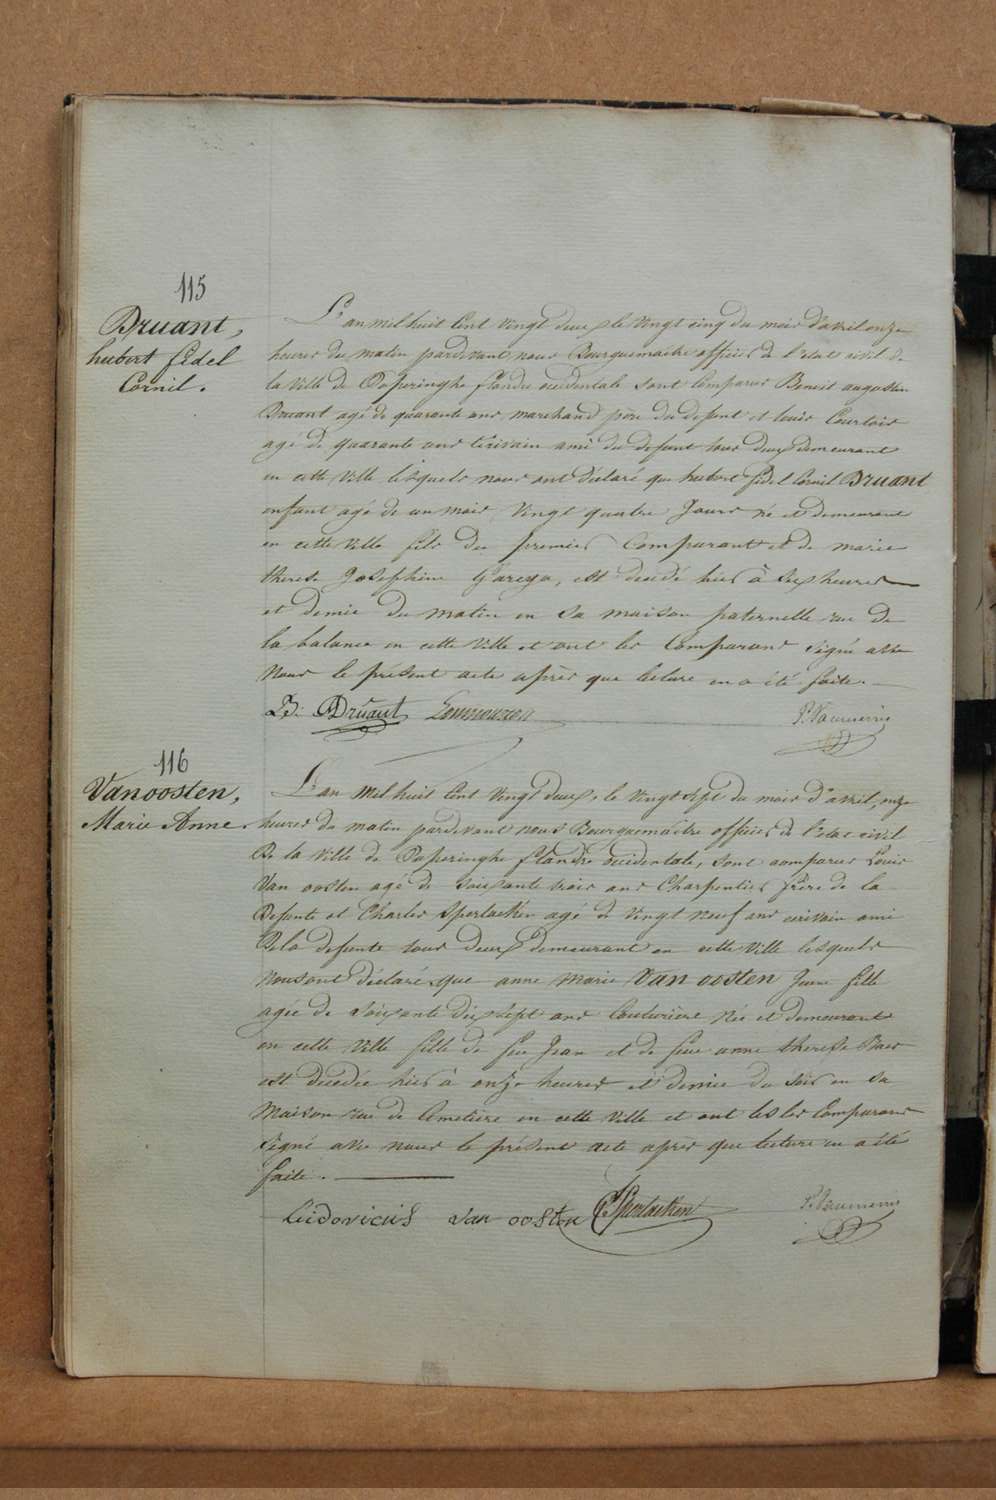 115
Bruant,
hubert fidel
Cornil.
L'an mil huit Cent vingt deux le vingt cinq du mois d'avril onze
heures du matin pardevant nous Bourguemaitre officier de l'etat civil de
la Ville de Poperinghe flandre occidentale sont Comparus Benoit augustin
Bruant agé de quarante ans marchand père du defunt et louis Courtois
agé de quarante ans Ecrivain ami du defunt tous deux demeurant
en cette Ville lesquels nous ont déclaré que hubert fidel Cornil Bruant
enfant agé de un mois vingt quatre Jours né et demeurant
en cette Ville fils du premier Comparant et de marie
therese Josephine est decedé hier à six heures
et demie du matin en sa maison paternelle rue de
la balance en cette Ville et ont les Comparans signé avec
Nous le présent acte après que lecture en a été faite.
B: Bruant
116
Van oosten,
Marie Anne.
L'an mil huit Cent Vingt deux, le vingt sept du mois d'avril, onze
heures du matin pardevant nous Bourguemaitre officier de l'etat civil
De la Ville de Poperinghe flandre occidentale, sont comparus Louis
Van oosten agé de soixante trois ans Charpentier frère de la
Defunte et Charles Sperlaeken agé de vingt neuf ans ecrivain ami
De la defunte tous deux demeurant en cette Ville lesquels
Nous ont déclaré que anne marie Van oosten Jeune fille
agée de soixante dix sept ans Couturiere Née et demeurant
en cette Ville fille de feu Jean et de feue anne therese Baes
est decedée hier à onze heures et demie du soir en sa
Maison rue de Cemetiere en cette Ville et ont les les Comparans
signé avec nous le présent acte apres que lecture en a été
faite.
Ludovicus Van oosten C Sperlaeken